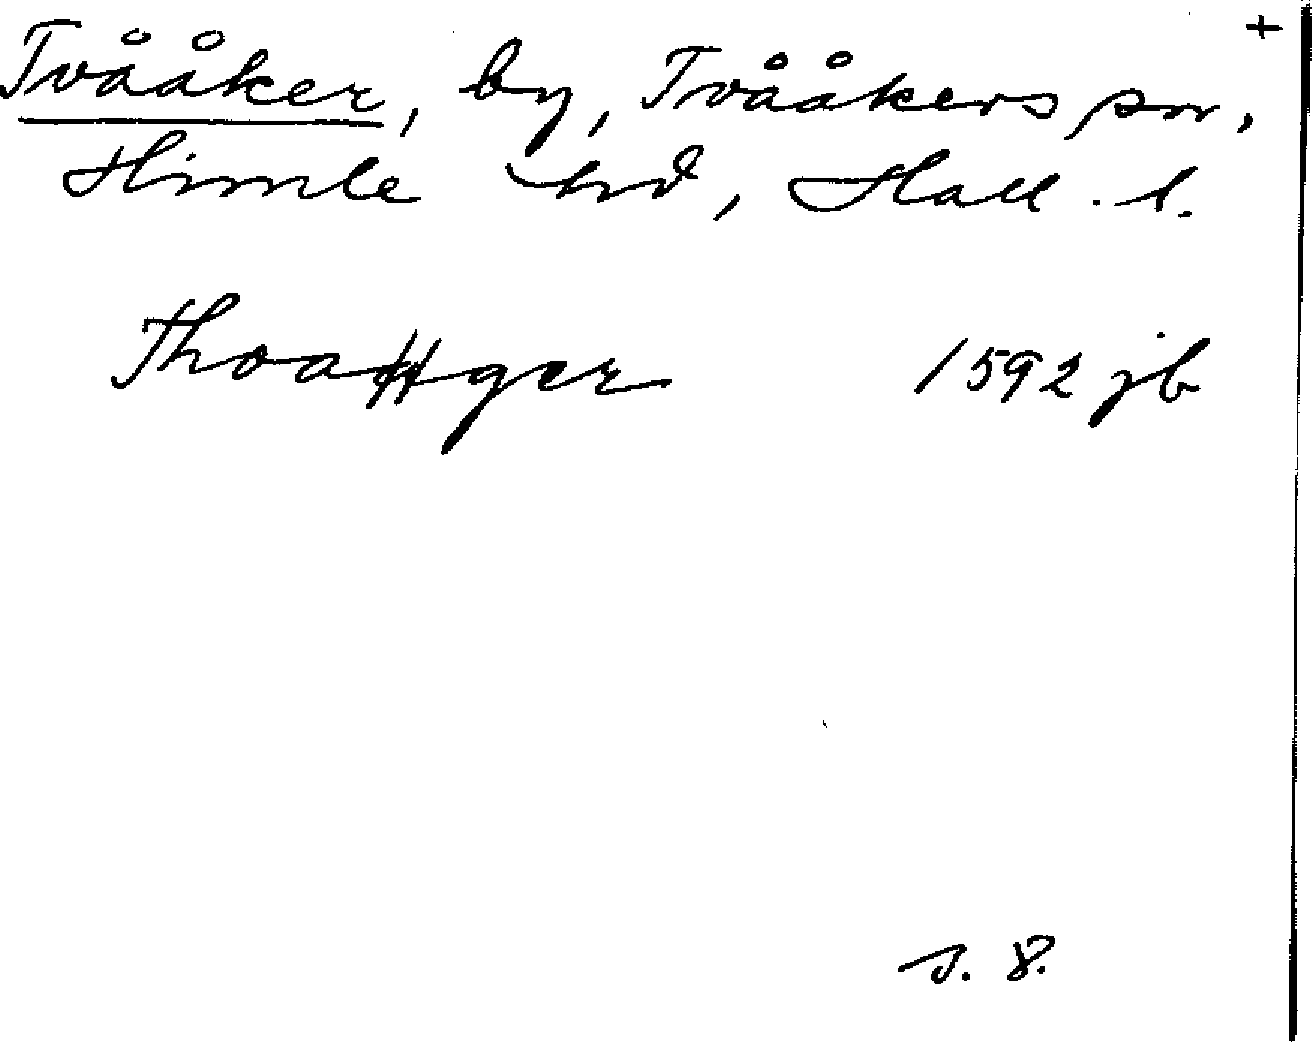 +
Tvååker, by, Tvååkers sn,
Himle hd, Hall. l.
Thoaager 1592 jb
s. 8.